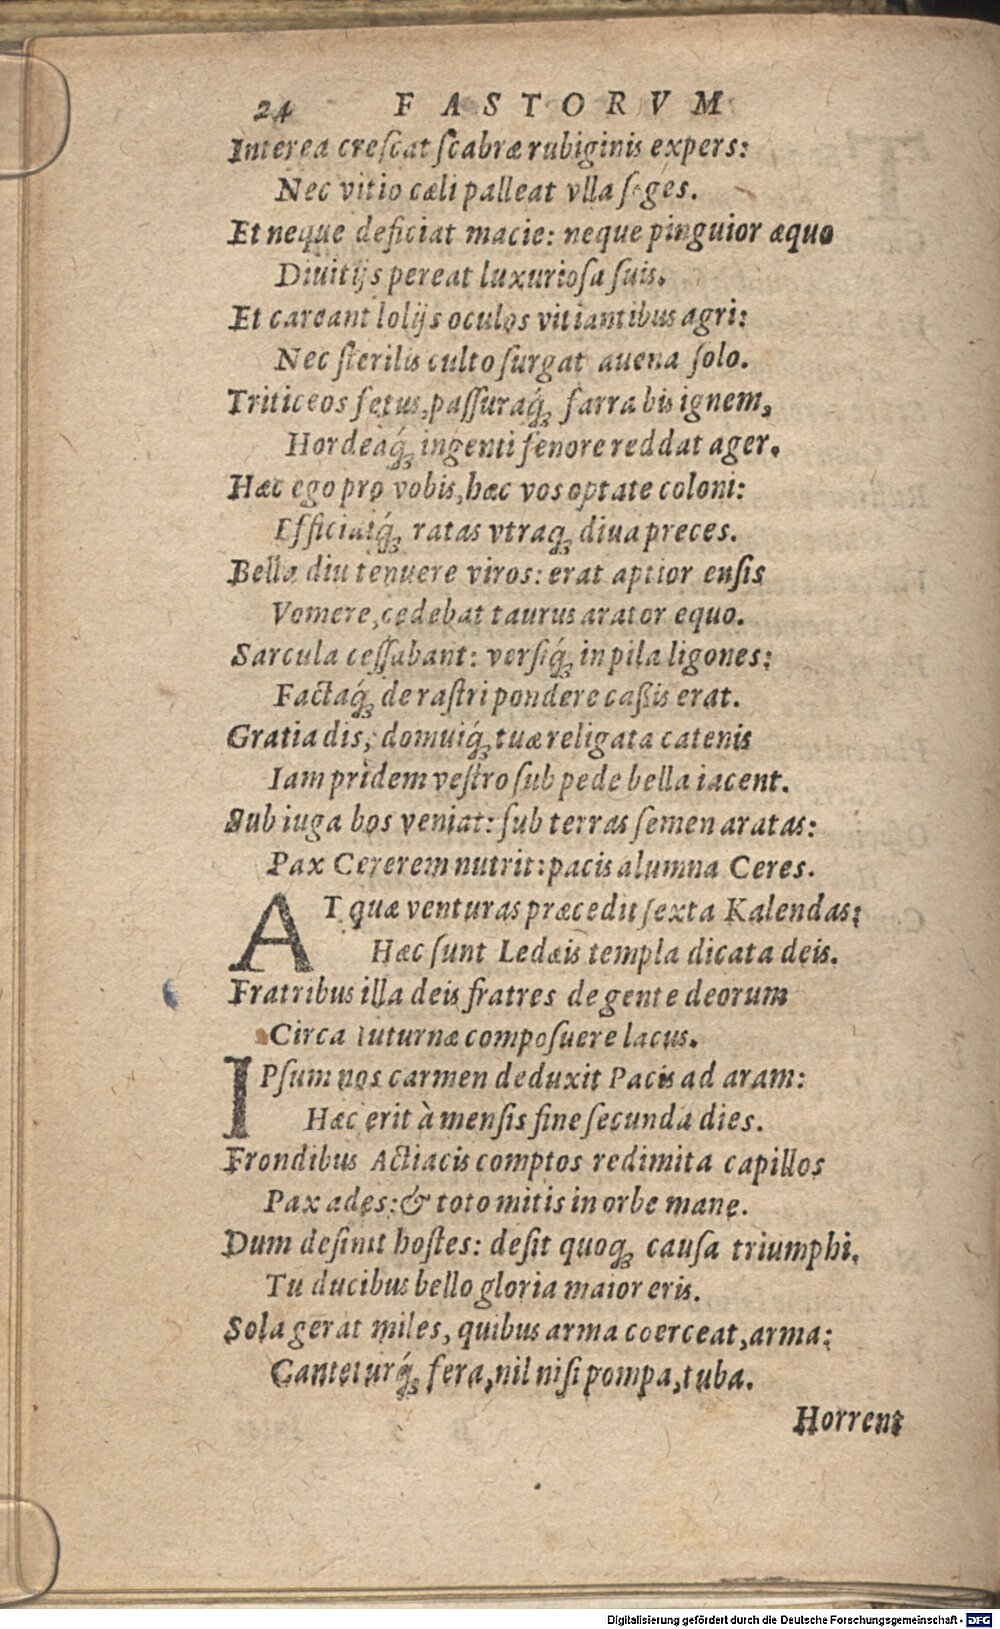 24 FASTORVM
Interea crescat scabræ rubiginis expers:
Nec vitio cæli palleat vlla seges.
Et neque deficiat macie: neque pinguior æquo
Diuitijs pereat luxuriosa suis.
Et careant lolijs oculos vitiantibus agri:
Nec sterilis culto surgat auena solo.
Triticeos fetus, passuraq́; farra bis ignem,
Hordeaq́; ingenti fenore reddat ager.
Hæc ego pro vobis, hæc vos optate coloni:
Efficiatq́; ratas vtraq; diua preces.
Bella diu tenuere viros: erat aptior ensis
Vomere, cedebat taurus arator equo.
Sarcula cessabant: versiq́; in pila ligones:
Factaq́; de rastri pondere caßis erat.
Gratia dis, domuiq́; tuæ religata catenis
Iam pridem vestro sub pede bella iacent.
Sub iuga bos veniat: sub terras semen aratas:
Pax Cererem nutrit: pacis alumna Ceres.
AT quæ venturas præcedit sexta Kalendas:
Hæc sunt Ledæis templa dicata deis.
Fratribus illa deis fratres de gente deorum
Circa Iuturnæ composuere lacus.
IPsum nos carmen deduxit Pacis ad aram:
Hæc erit à mensis fine secunda dies.
Frondibus Actiacis comptos redimita capillos
Pax ades: & toto mitis in orbe mane.
Dum desinit hostes: desit quoq; causa triumphi.
Tu ducibus bello gloria maior eris.
Sola gerat miles, quibus arma coerceat, arma:
Canteturq́; fera, nil nisi pompa, tuba.
Horrent
Digitalisierung gefördert durch die Deutsche Forschungsgemeinschaft - DFG